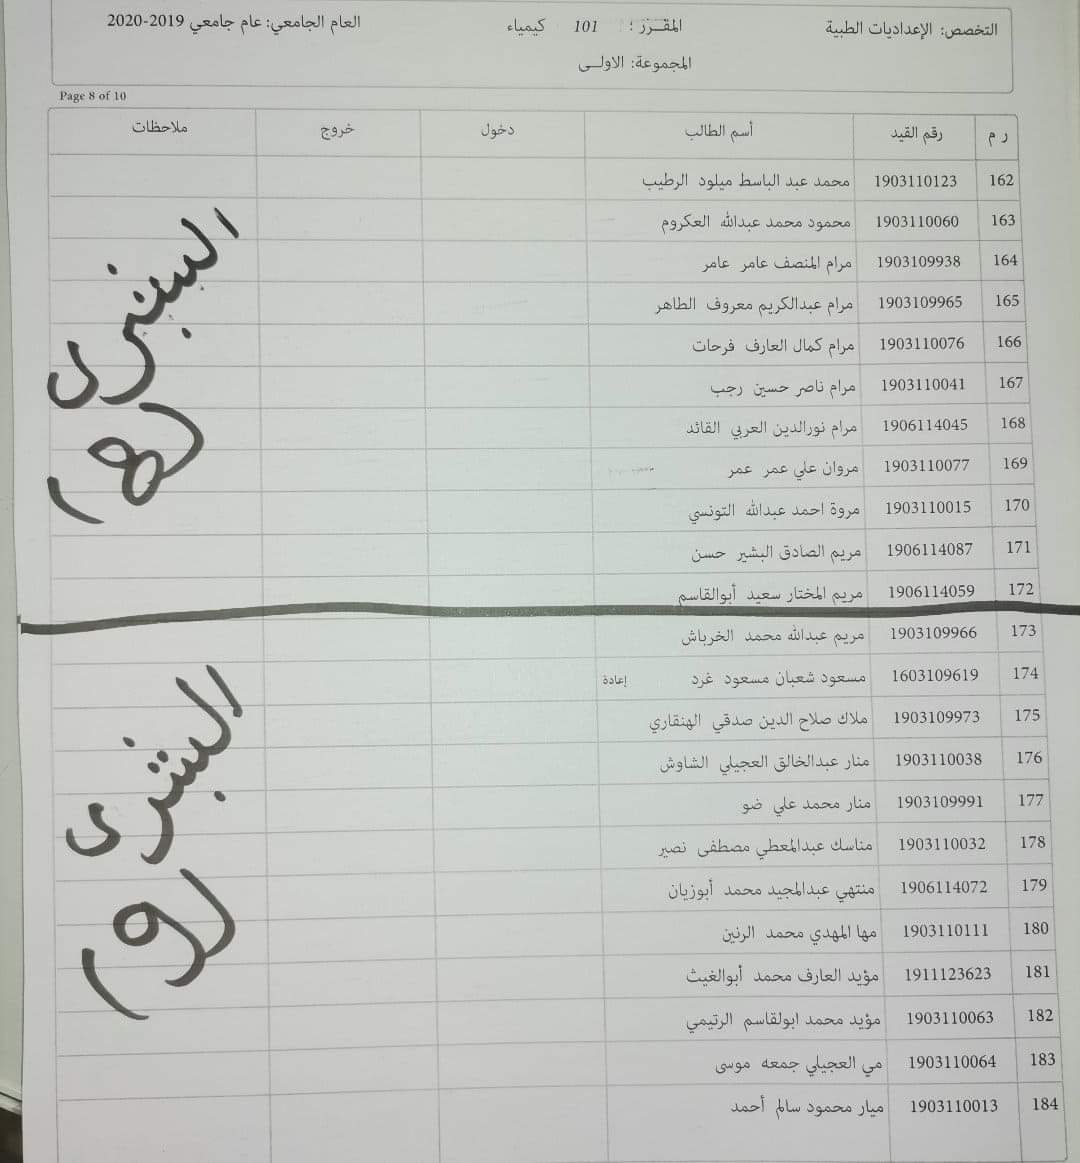 التخصص: الإعداديات الطبية المقـــرر : 101 كيمياء العام الجامعي: عام جامعي 2019-2020
المجموعة: الاولــى
Page 8 of 10
ر م رقم القيد أسم الطالب دخول خروج ملاحظات
162 1903110123 محمد عبد الباسط ميلود الرطيب
163 1903110060 محمود محمد عبدالله العكروم
164 1903109938 مرام المنصف عامر عامر
165 1903109965 مرام عبدالكريم معروف الطاهر
166 1903110076 مرام كمال العارف فرحات
167 1903110041 مرام ناصر حسين رجب
168 1906114045 مرام نورالدين العربي القائد
169 1903110077 مروان علي عمر عمر
170 1903110015 مروة احمد عبدالله التونسي
171 1906114087 مريم الصادق البشير حسن
172 1906114059 مريم المختار سعيد أبوالقاسم
173 1903109966 مريم عبدالله محمد الخرباش
174 1603109619 مسعود شعبان مسعود غرد إعادة
175 1903109973 ملاك صلاح الدين صدقي الهنقاري
176 1903110038 منار عبدالخالق العجيلي الشاوش
177 1903109991 منار محمد علي ضو
178 1903110032 مناسك عبدالمعطي مصطفى نصير
179 1906114072 منتهي عبدالمجيد محمد أبوزيان
180 1903110111 مها المهدي محمد الرنين
181 1911123623 مؤيد العارف محمد أبوالغيث
182 1903110063 مؤيد محمد ابولقاسم الرتيمي
183 1903110064 مي العجيلي جمعه موسى
184 1903110013 ميار محمود سالم أحمد